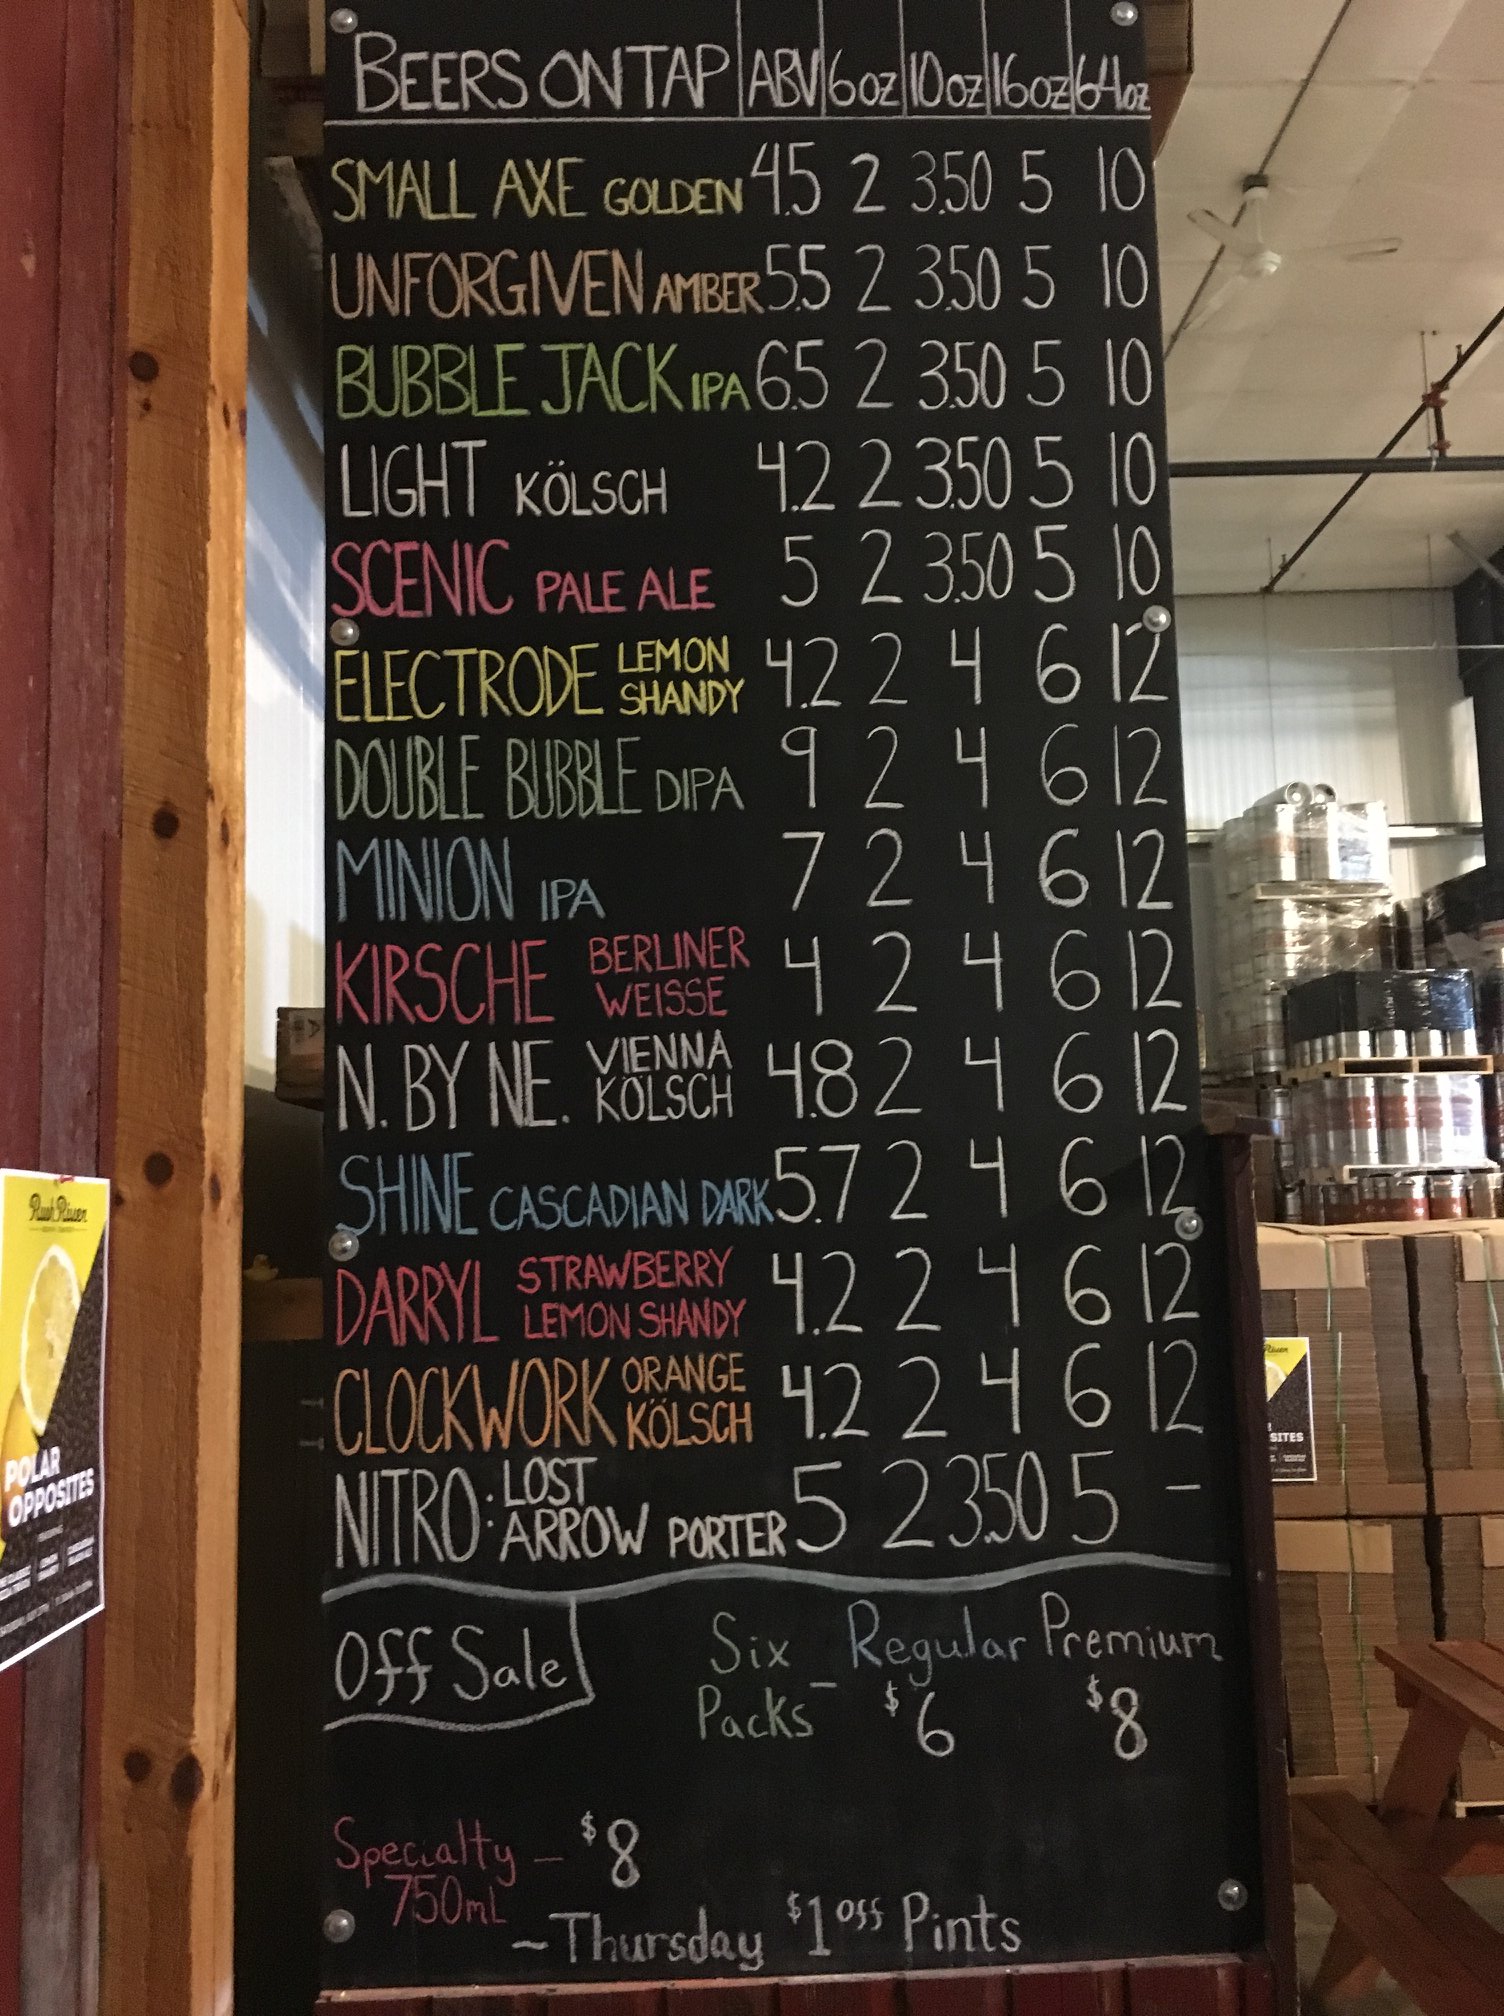 BEERS ON TAP ABV 6oz 10oz 16oz 64oz
SMALL AXE GOLDEN 4.5 2 3.50 5 10
UNFORGIVEN AMBER 5.5 2 3.50 5 10
BUBBLE JACK IPA 6.5 2 3.50 5 10
LIGHT KÖLSCH 4.2 2 3.50 5 10
SCENIC PALE ALE 5 2 3.50 5 10
ELECTRODE LEMON SHANDY 4.2 2 4 6 12
DOUBLE BUBBLE DIPA 9 2 4 6 12
MINION IPA 7 2 4 6 12
KIRSCHE BERLINER WEISSE 4 2 4 6 12
N. BY NE. VIENNA KÖLSCH 4.8 2 4 6 12
SHINE CASCADIAN DARK 5.7 2 4 6 12
DARRYL STRAWBERRY LEMON SHANDY 4.2 2 4 6 12
CLOCKWORK ORANGE KÖLSCH 4.2 2 4 6 12
NITRO: LOST ARROW PORTER 5 2 3.50 5 -
Off Sale
Six Packs - Regular $6 Premium $8
Specialty 750mL - $8
~ Thursday $1 off Pints
Rush River
POLAR
OPPOSITES